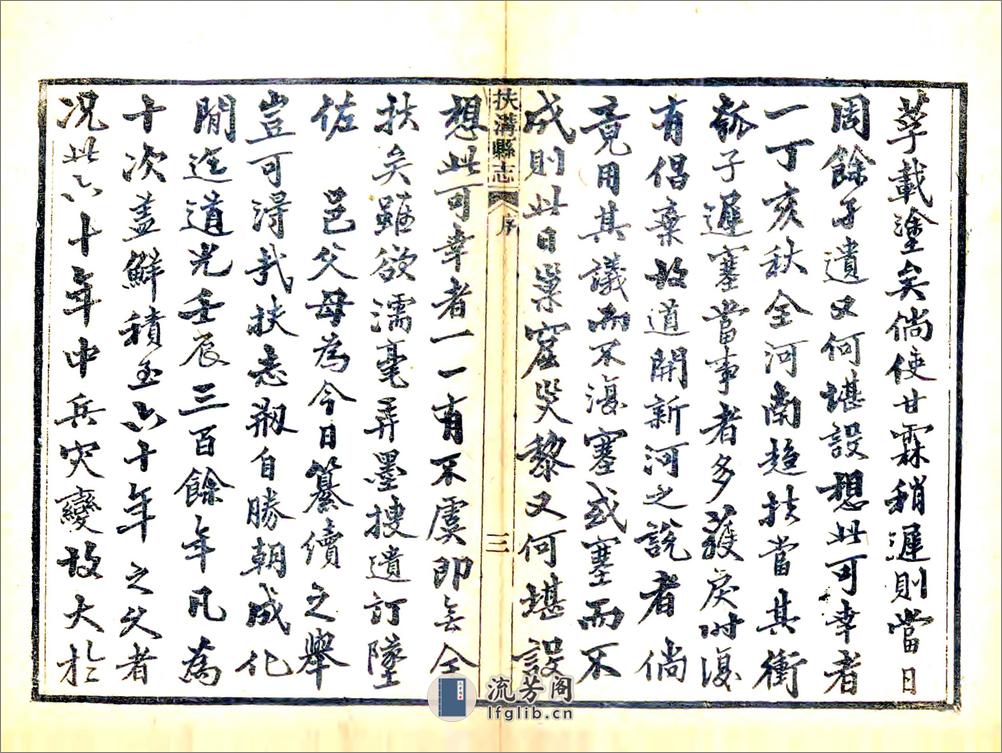 莩載塗矣倘使甘霖稍遲則當日
周餘孑遺又何堪設想此可幸者
一丁亥秋全河南趨扶當其衝
瓠子遲塞當事者多獲戾时復
有倡棄故道開新河之說者倘
竟用其議而不復塞或塞而不
成則此日巢窟災黎又何堪設
扶溝縣志
序
三
想此可幸者一一有不虞即無今
扶矣雖欲濡毫弄墨搜遺訂墜
佐　邑父母為今日纂續之舉
豈可得哉扶志剏自勝朝成化
閒迄道光壬辰三百餘年凡為
十次蓋鮮積至六十年之久者
況此六十年中兵灾變故大於
流芳阁
lfglib.cn